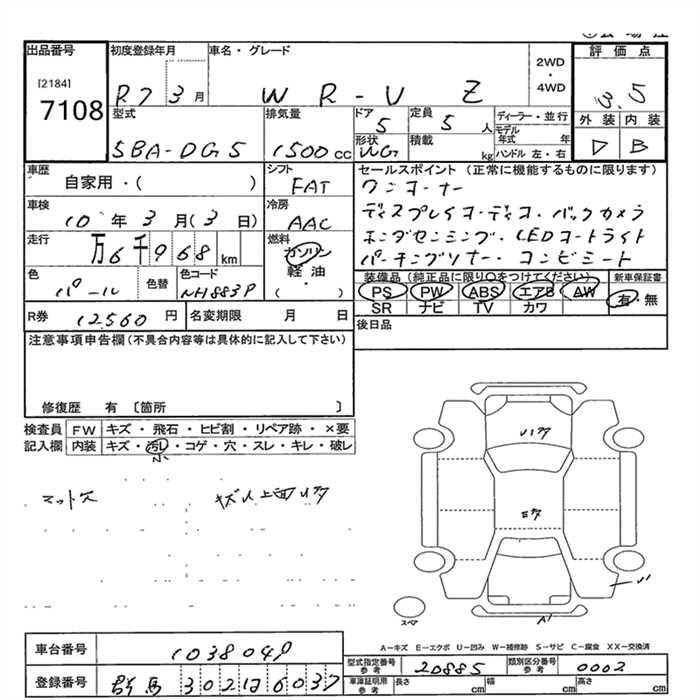 出品番号
[2184]
7108
初度登録年月
R7 3月
車名・グレード
WR-V Z
2WD
・
4WD
評価点
3.5
外装 内装
D B
型式
5BA-DG5
排気量
1500cc
ドア
5
形状
WG
定員
5人
積載
kg
ディーラー・並行
モデル年式 年
ハンドル 左・右
車歴
自家用・( )
シフト
FAT
セールスポイント (正常に機能するものに限ります)
ワンオーナー
ディスプレイオーディオ・バックカメラ
ホンダセンシング・LEDオートライト
パーキングソナー・コンビシート
車検
10年3月(3日)
冷房
AAC
走行
万6千968km
燃料
ガソリン
軽油
・
( )
色
パール
色替
色コード
NH883P
装備品(純正品に限り○をつけてください)
PS PW ABS エアB AW
SR ナビ TV カワ
新車保証書
有・無
R券 12,560円
名変期限 月 日
後日品
注意事項申告欄(不具合内容等は具体的に記入して下さい)
修復歴 有〔箇所 〕
検査員
記入欄
FW キズ・飛石・ヒビ割・リペア跡・×要
内装 キズ・汚し・コゲ・穴・スレ・キレ・破レ
小
マット欠
スペア
A1
A－キズ E－エクボ U－凹み W－補修跡 S－サビ C－腐食 XX－交換済
車台番号 1038049
登録番号 群馬 302 6037
型式指定番号
参考
20885
類別区分番号
参考
0002
車庫証明用
参考
長さ cm
幅 cm
高さ cm